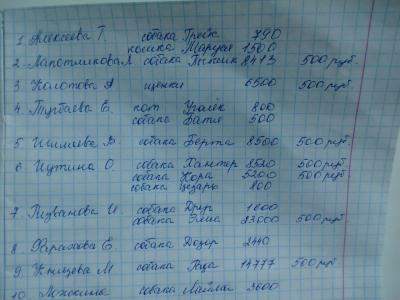 1 Алексеева Т. собака Грейк 790
кошка Маруся 1500
2 Лапотникова Л собака Пыжик 8413 500 руб.
3 Колотова А щенки 6500 500 руб.
4 Тугбаева Е. кот Уголёк 800
собака Батя 500
5 Ишмаева В. собака Берта 8500 500 руб.
6 Кутина О. собака Хантер 8520 500 руб
собака Кора 5200 500 руб
собака Цезарь 800
7 Ризванова И. собака Друг 1600
собака Эльза 23000 500 руб
8 Фархова Е. собака 2440
9 М. собака 14777 500 руб
10. собака Лайма 3600